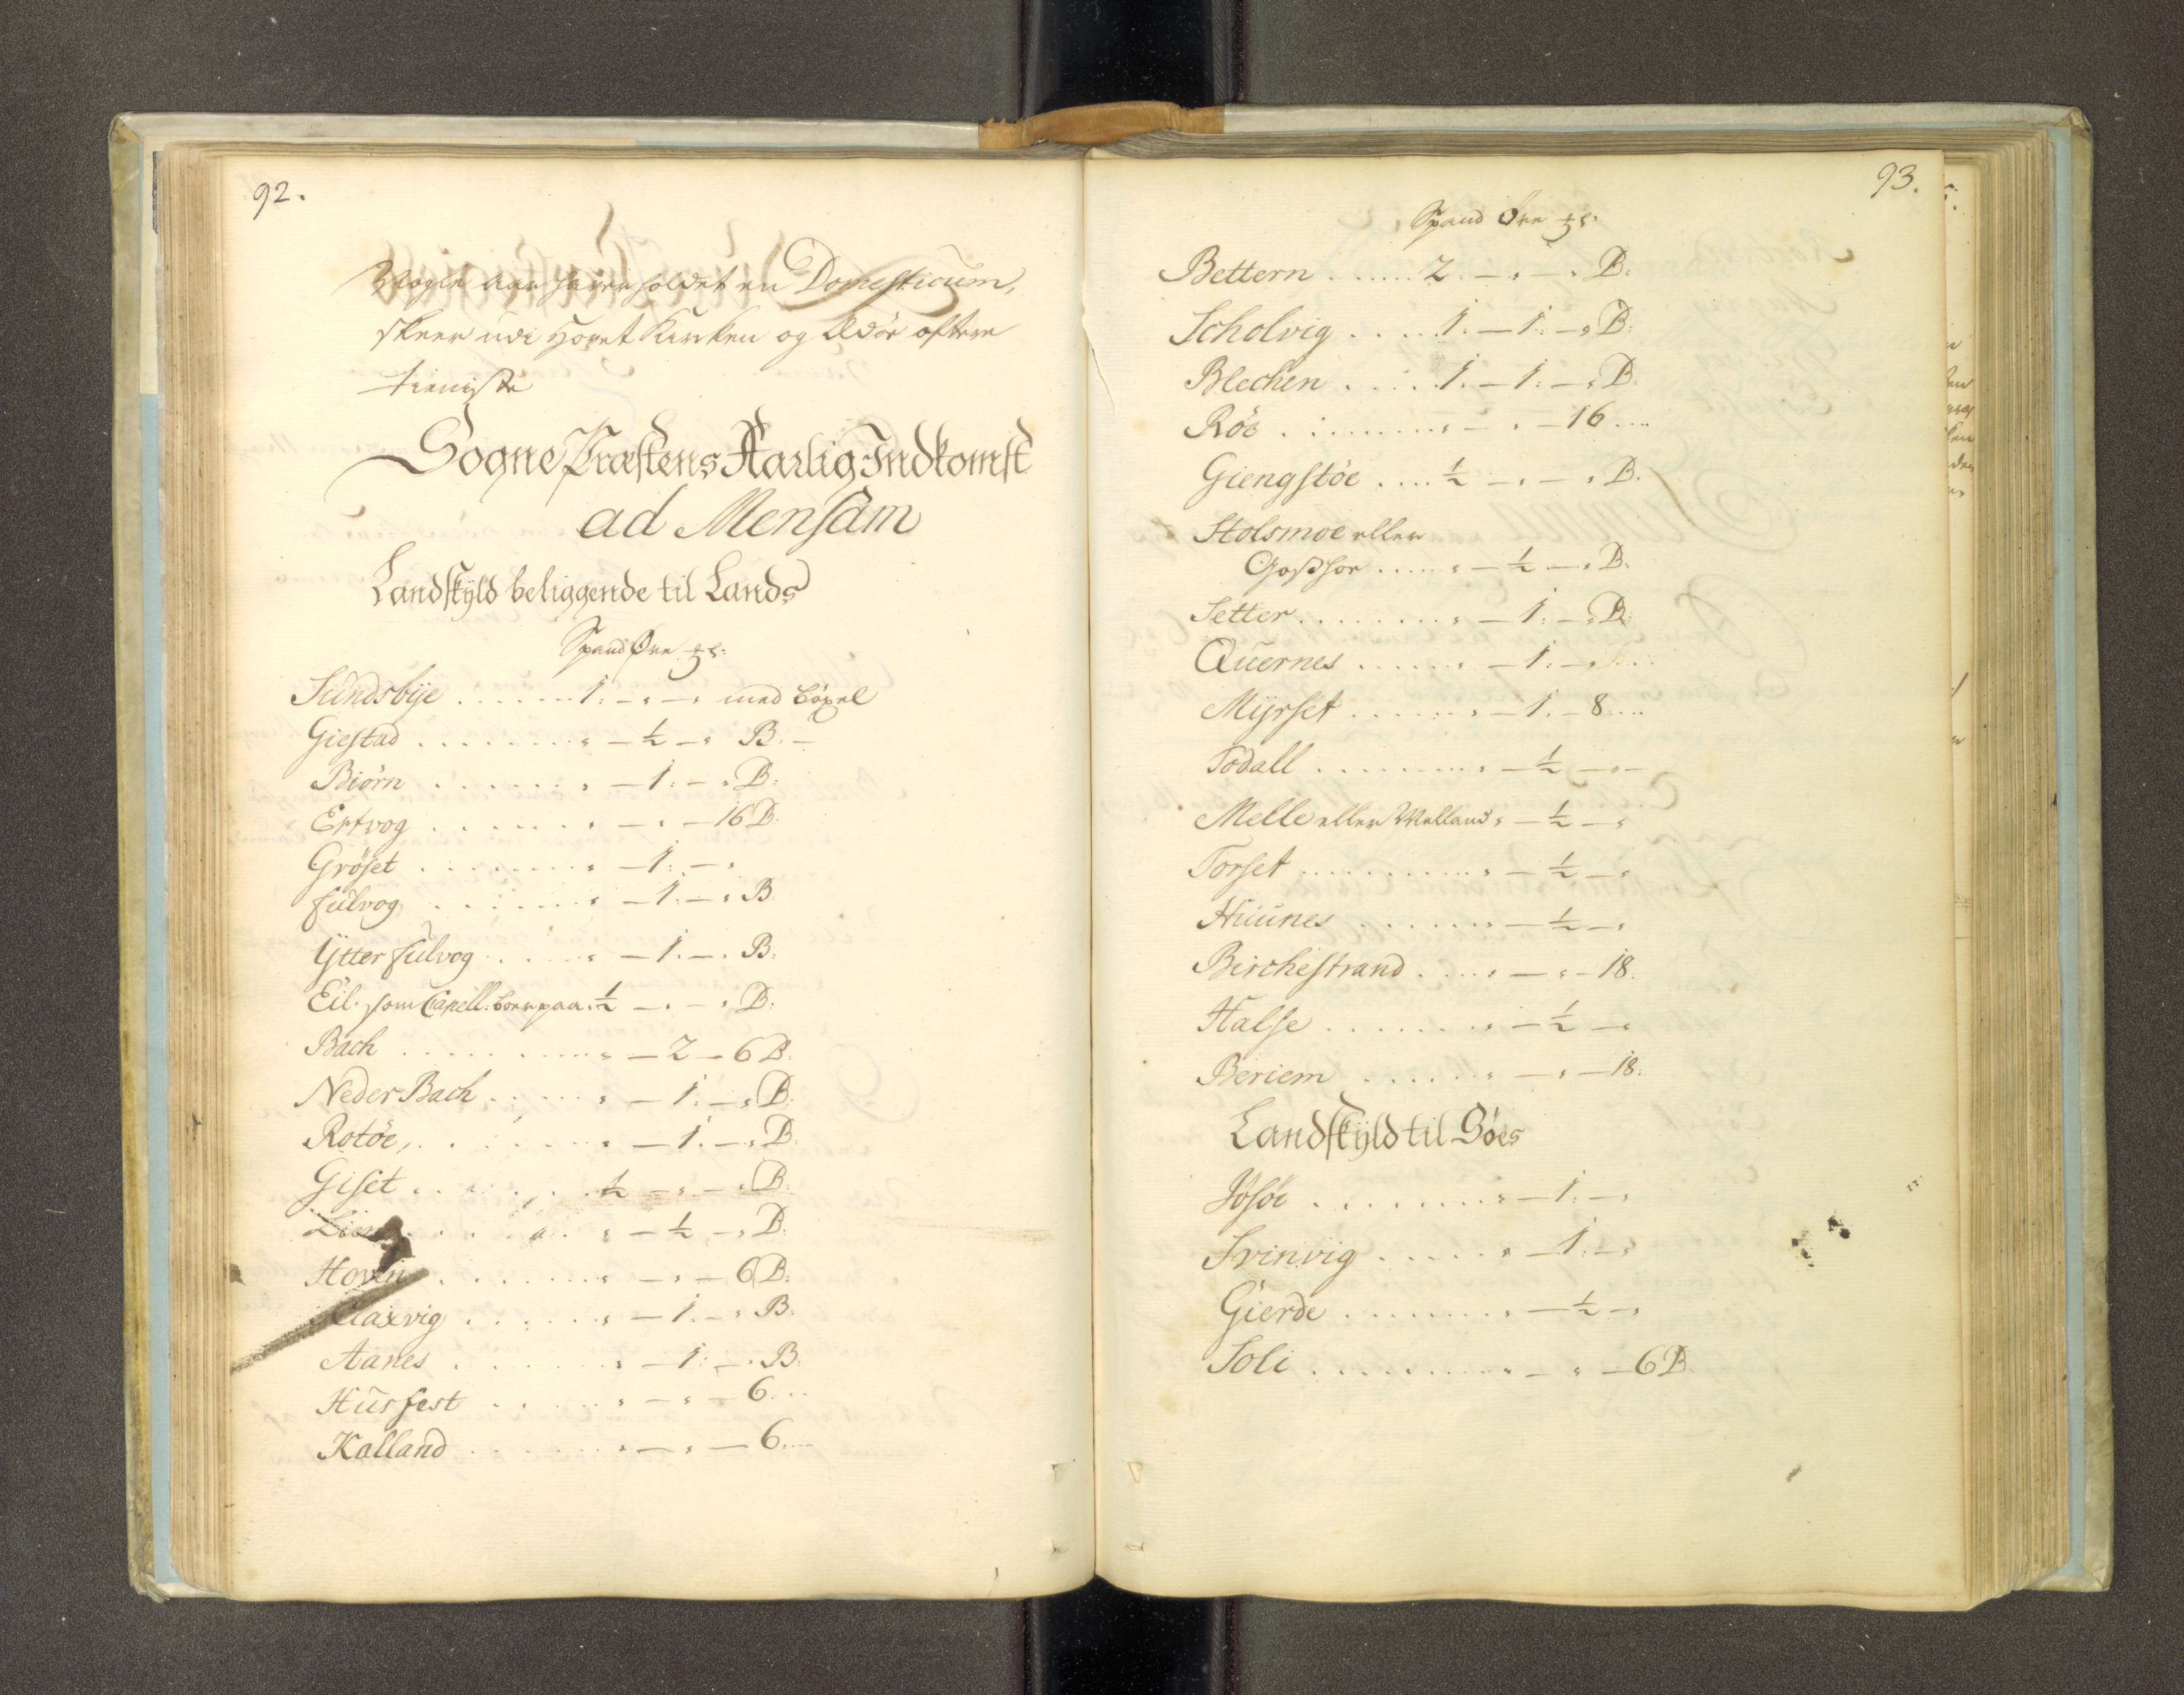 92.
Nogle Aar haver holdet en Domesticum,
skeer udi Hovet Kirken og Edöe oftere
tieniste
Sogne Præstens Aarlig Indkomst
ad Mensam
Landskÿld beliggende til Lands
Spand Øre
Sundsbÿe . . . . . . . 1. – „ – „ med böxel
Giestad . . . . . . . . „ – ½ – „ B. –
Biörn . . . . . . . „ – 1. – „ B:
Ertvog . . . . . . . „ – „ – 16 B.
Gröset . . . . . . . . „ – 1. – „
fulvog . . . . . . . „ – 1. – „ B.
Ÿtter fulvog . . . . . „ – 1. – „ B:
Eil. som Capell: boer paa. ½ – „ – „ B:
Bach . . . . . . . . . „ – 2 – 6 B.
Neder Bach . . . . . „ – 1. – „ B:
Rotöe, . . . . . . . „ – 1. – „ B:
Giset . . . . . . . ½ – „ – „ B:
. . . . . . „ – ½ – „ B:
Hoven . . . . . . . . „ – „ – 6 B:
. . . . . . „ – 1. – „ B:
Aanes . . . . . . . „ – 1. – „ B:
Husfest . . . . . „ – „ – 6. . .
Kalland . . . . . . . „ – „ – 6. . . .
93.
Spand Øre
Bettern . . . . . . 2. – „ – „ B:
Scholvig . . . . 1. – 1. – „ B:
Blechen . . . . . 1. – 1. – „ B.
Röe . . . . . . . . . „ – „ – 16 . . . .
Giengstöe . . . . ½ – „ – „ B.
Stolsmoe eller
. . . . . „ – ½ – „ B.
Setter . . . . . . . . . „ – 1. – „ B.
Quernes . . . . . . „ – 1. – „
Mÿrset . . . . . . . „ – 1. – 8 . . . .
Todall . . . . . . . . . „ – ½ – „ –
Melle eller Melland „ – ½ – „
Torset . . . . . . . . . . . „ – ½ – „
Huunes . . . . . . . „ – ½ – „
Birchestrand . . . . „ – „ – 18.
Halse . . . . . . . . „ – ½ – „
Beriem . . . . . . . „ – „ – 18.
Landskÿld til Söes
Jösöe . . . . . . . . „ – 1. – „
Svinvig . . . . . „ – 1. – „
Gierde . . . . . . . . . „ – ½ – „
Soli . . . . . . . . . . „ – „ – 6 B.